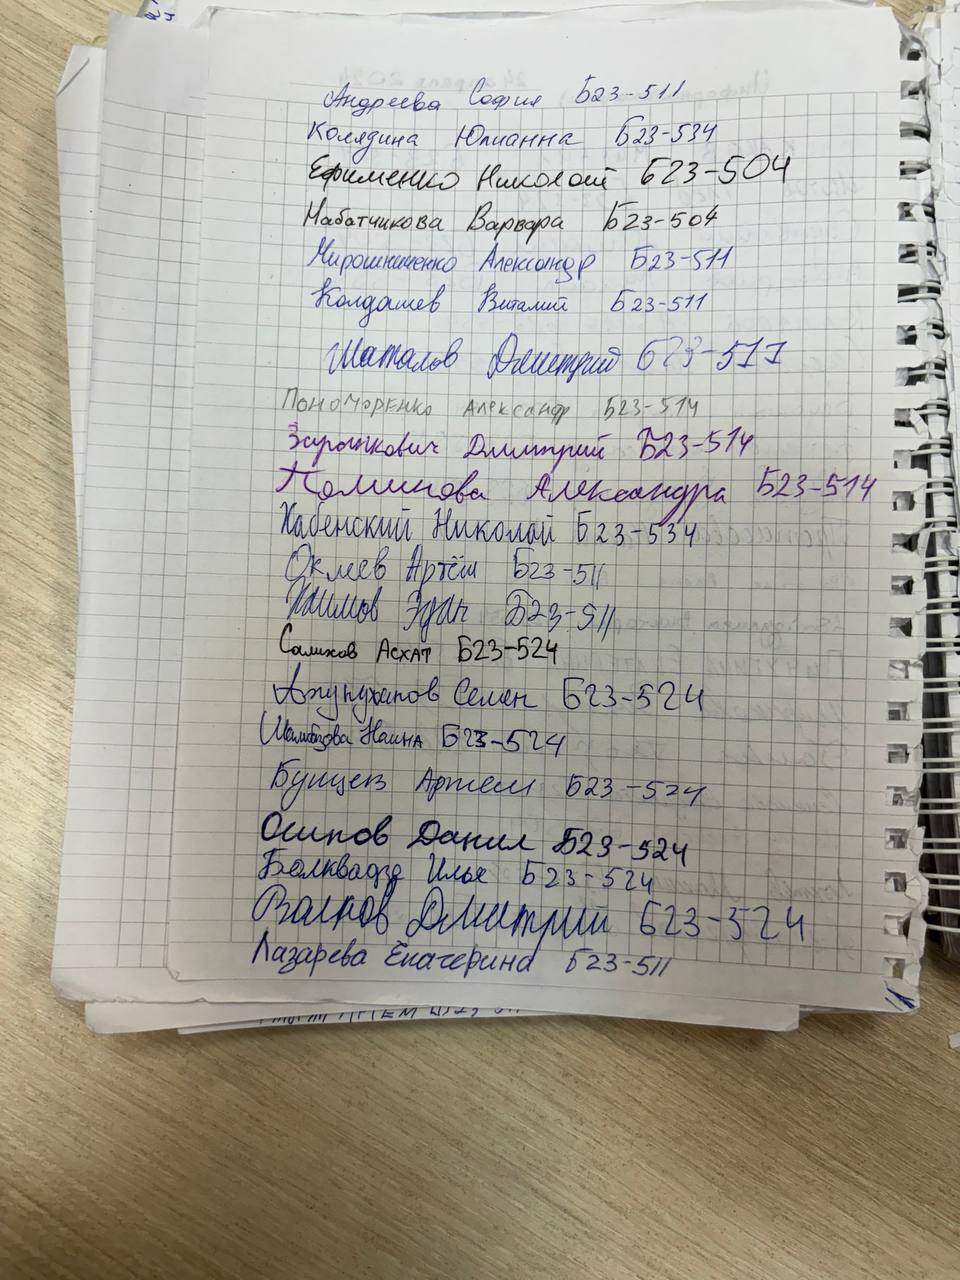 Андреева София Б23-511
Колядина Юлианна Б23-534
Ефименко Николай Б23-504
Набатчикова Варвара Б23-504
Мирошниченко Александр Б23-511
Колдашев Виталий Б23-511
Шаталов Дмитрий Б23-511
Пономоренко Александр Б23-514
Дмитрий Б23-514
Александра Б23-514
Хабенский Николай Б23-534
Окмев Артём Б23-511
Эдит Б23-511
Салихов Асхат Б23-524
Семен Б23-524
Наина Б23-524
Артем Б23-524
Осипов Данил Б23-524
Белквадзе Илья Б23-524
Волков Дмитрий Б23-524
Лазарева Екатерина Б23-511